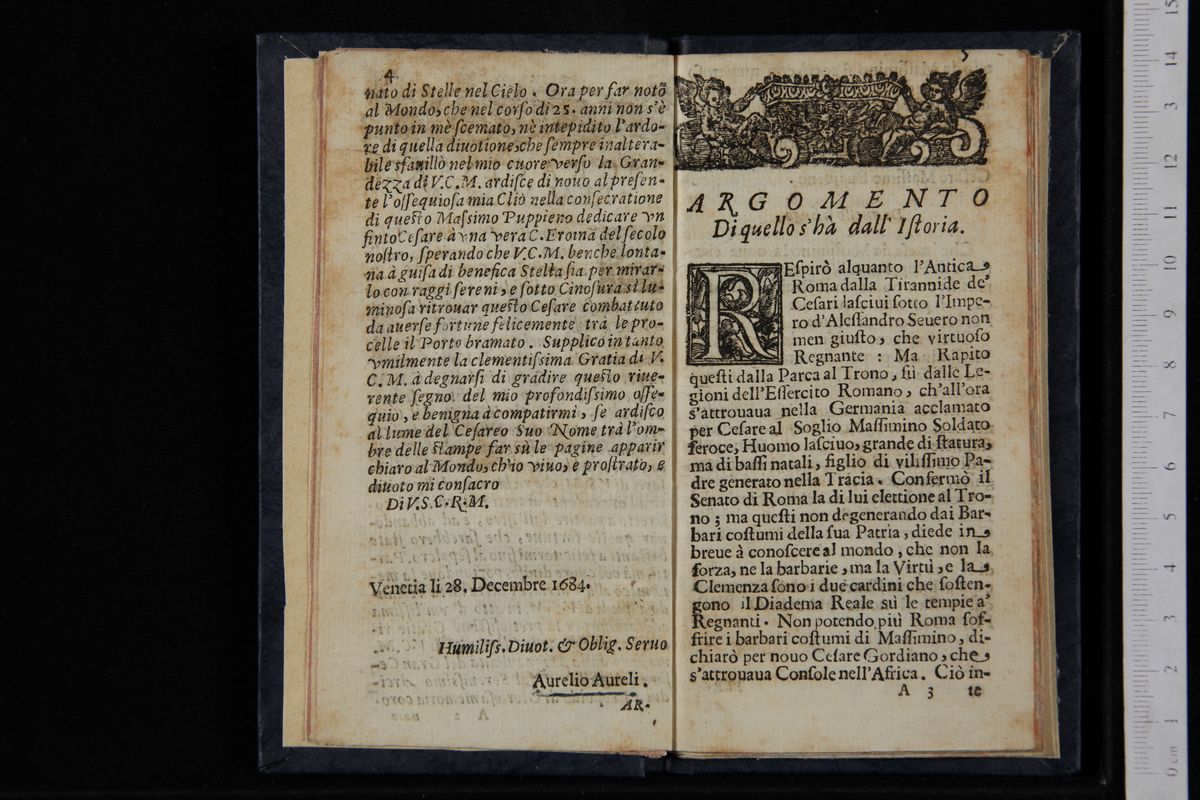 4
nato di Stelle nel Cielo. Ora per far notò
al Mondo, che nel corſo di 25. anni non s'è
punto in mè ſcemato, nè intepidito l'ardo-
re di quella diuotione, che ſempre inaltera-
bile sfauillò nel mio cuore verſo la Gran-
dezza di V.C.M. ardiſce di nouo al preſen-
te l'oſſequioſa mia Cliò nella conſecratione
di queſto Maſſimo Puppieno dedicare vn
finto Ceſare à vna vera C. Eroina del ſecolo
noſtro, ſperando che V.C.M. benche lonta-
na à guiſa di benefica Stella ſia per mirar-
lo con raggi ſereni, e ſotto Cinoſura sì lu-
minoſa ritrouar queſto Ceſare combattuto
da auerſe fortune felicemente trà le pro-
celle il Porto bramato. Supplico in tanto
vmilmente la clementiſſima Gratia di V.
C. M. à degnarſi di gradire queſto riue-
rente ſegno del mio profondiſſimo oſſe-
quio, e benigna à compatirmi, ſe ardiſco
al lume del Ceſareo Suo Nome trà l'om-
bre delle ſtampe far sù le pagine apparir
chiaro al Mondo, ch'io viuo, e proſtrato, e
diuoto mi conſacro
Di V.S.C.R.M.
Venetia li 28. Decembre 1684.
Humiliſs. Diuot. & Oblig. Seruo
Aurelio Aureli.
AR-
5
ARGOMENTO
Di quello s'hà dall' Iſtoria.
REſpirò alquanto l'Antica
Roma dalla Tirannide de'
Ceſari laſciui ſotto l'Impe-
ro d'Aleſſandro Seuero non
men giuſto, che virtuoſo
Regnante: Ma Rapito
queſti dalla Parca al Trono, fù dalle Le-
gioni dell'Eſſercito Romano, ch'all'ora
s'attrouaua nella Germania acclamato
per Ceſare al Soglio Maſſimino Soldato
feroce, Huomo laſciuo, grande di ſtatura,
ma di baſſi natali, figlio di viliſſimo Pa-
dre generato nella Tracia. Confermò il
Senato di Roma la di lui elettione al Tro-
no; ma queſti non degenerando dai Bar-
bari coſtumi della ſua Patria, diede in
breue à conoſcere al mondo, che non la
forza, ne la barbarie, ma la Virtù, e la
Clemenza ſono i due cardini che ſoſten-
gono il Diadema Reale sù le tempie a'
Regnanti. Non potendo più Roma ſof-
frire i barbari coſtumi di Maſſimino, di-
chiarò per nouo Ceſare Gordiano, che
s'attrouaua Conſole nell'Africa. Ciò in-
A 3 te
0 cm 1 2 3 4 5 6 7 8 9 10 11 12 3 14 15